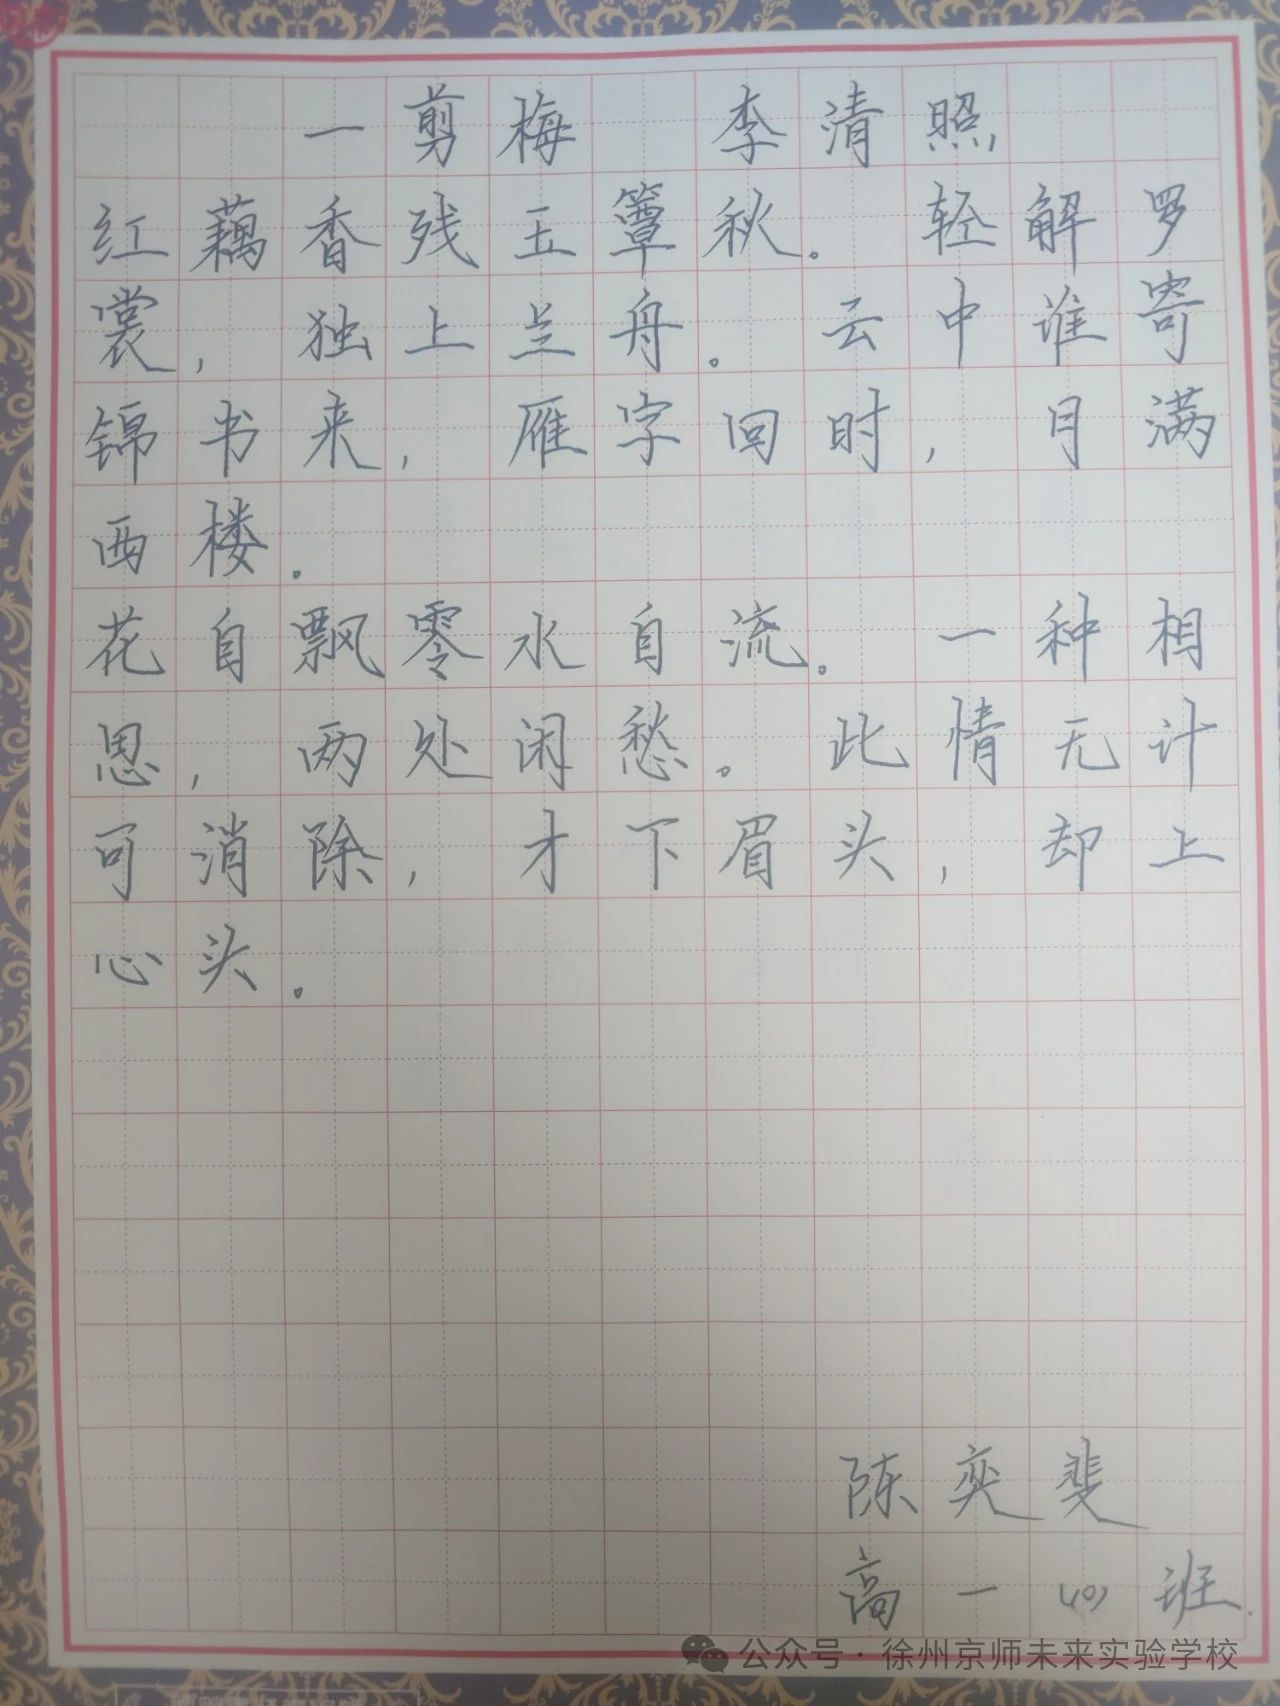 一剪梅 李清照
红藕香残玉簟秋。 轻解罗
裳, 独上兰舟。 云中谁寄
锦书来, 雁字回时, 月满
西楼.
花自飘零水自流。 一种相
思, 两处闲愁。 此情无计
可消除, 才下眉头, 却上
心头.
陈奕斐
高一 班.
公众号 · 徐州京师未来实验学校